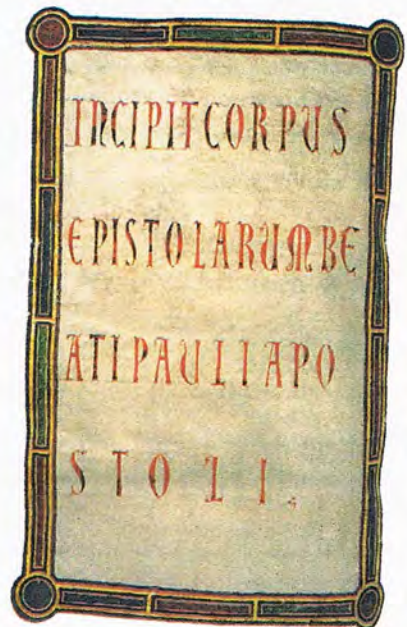 INCIPIT CORPUS
EPISTOLARUM BE
ATI PAULI APO
STOLI.